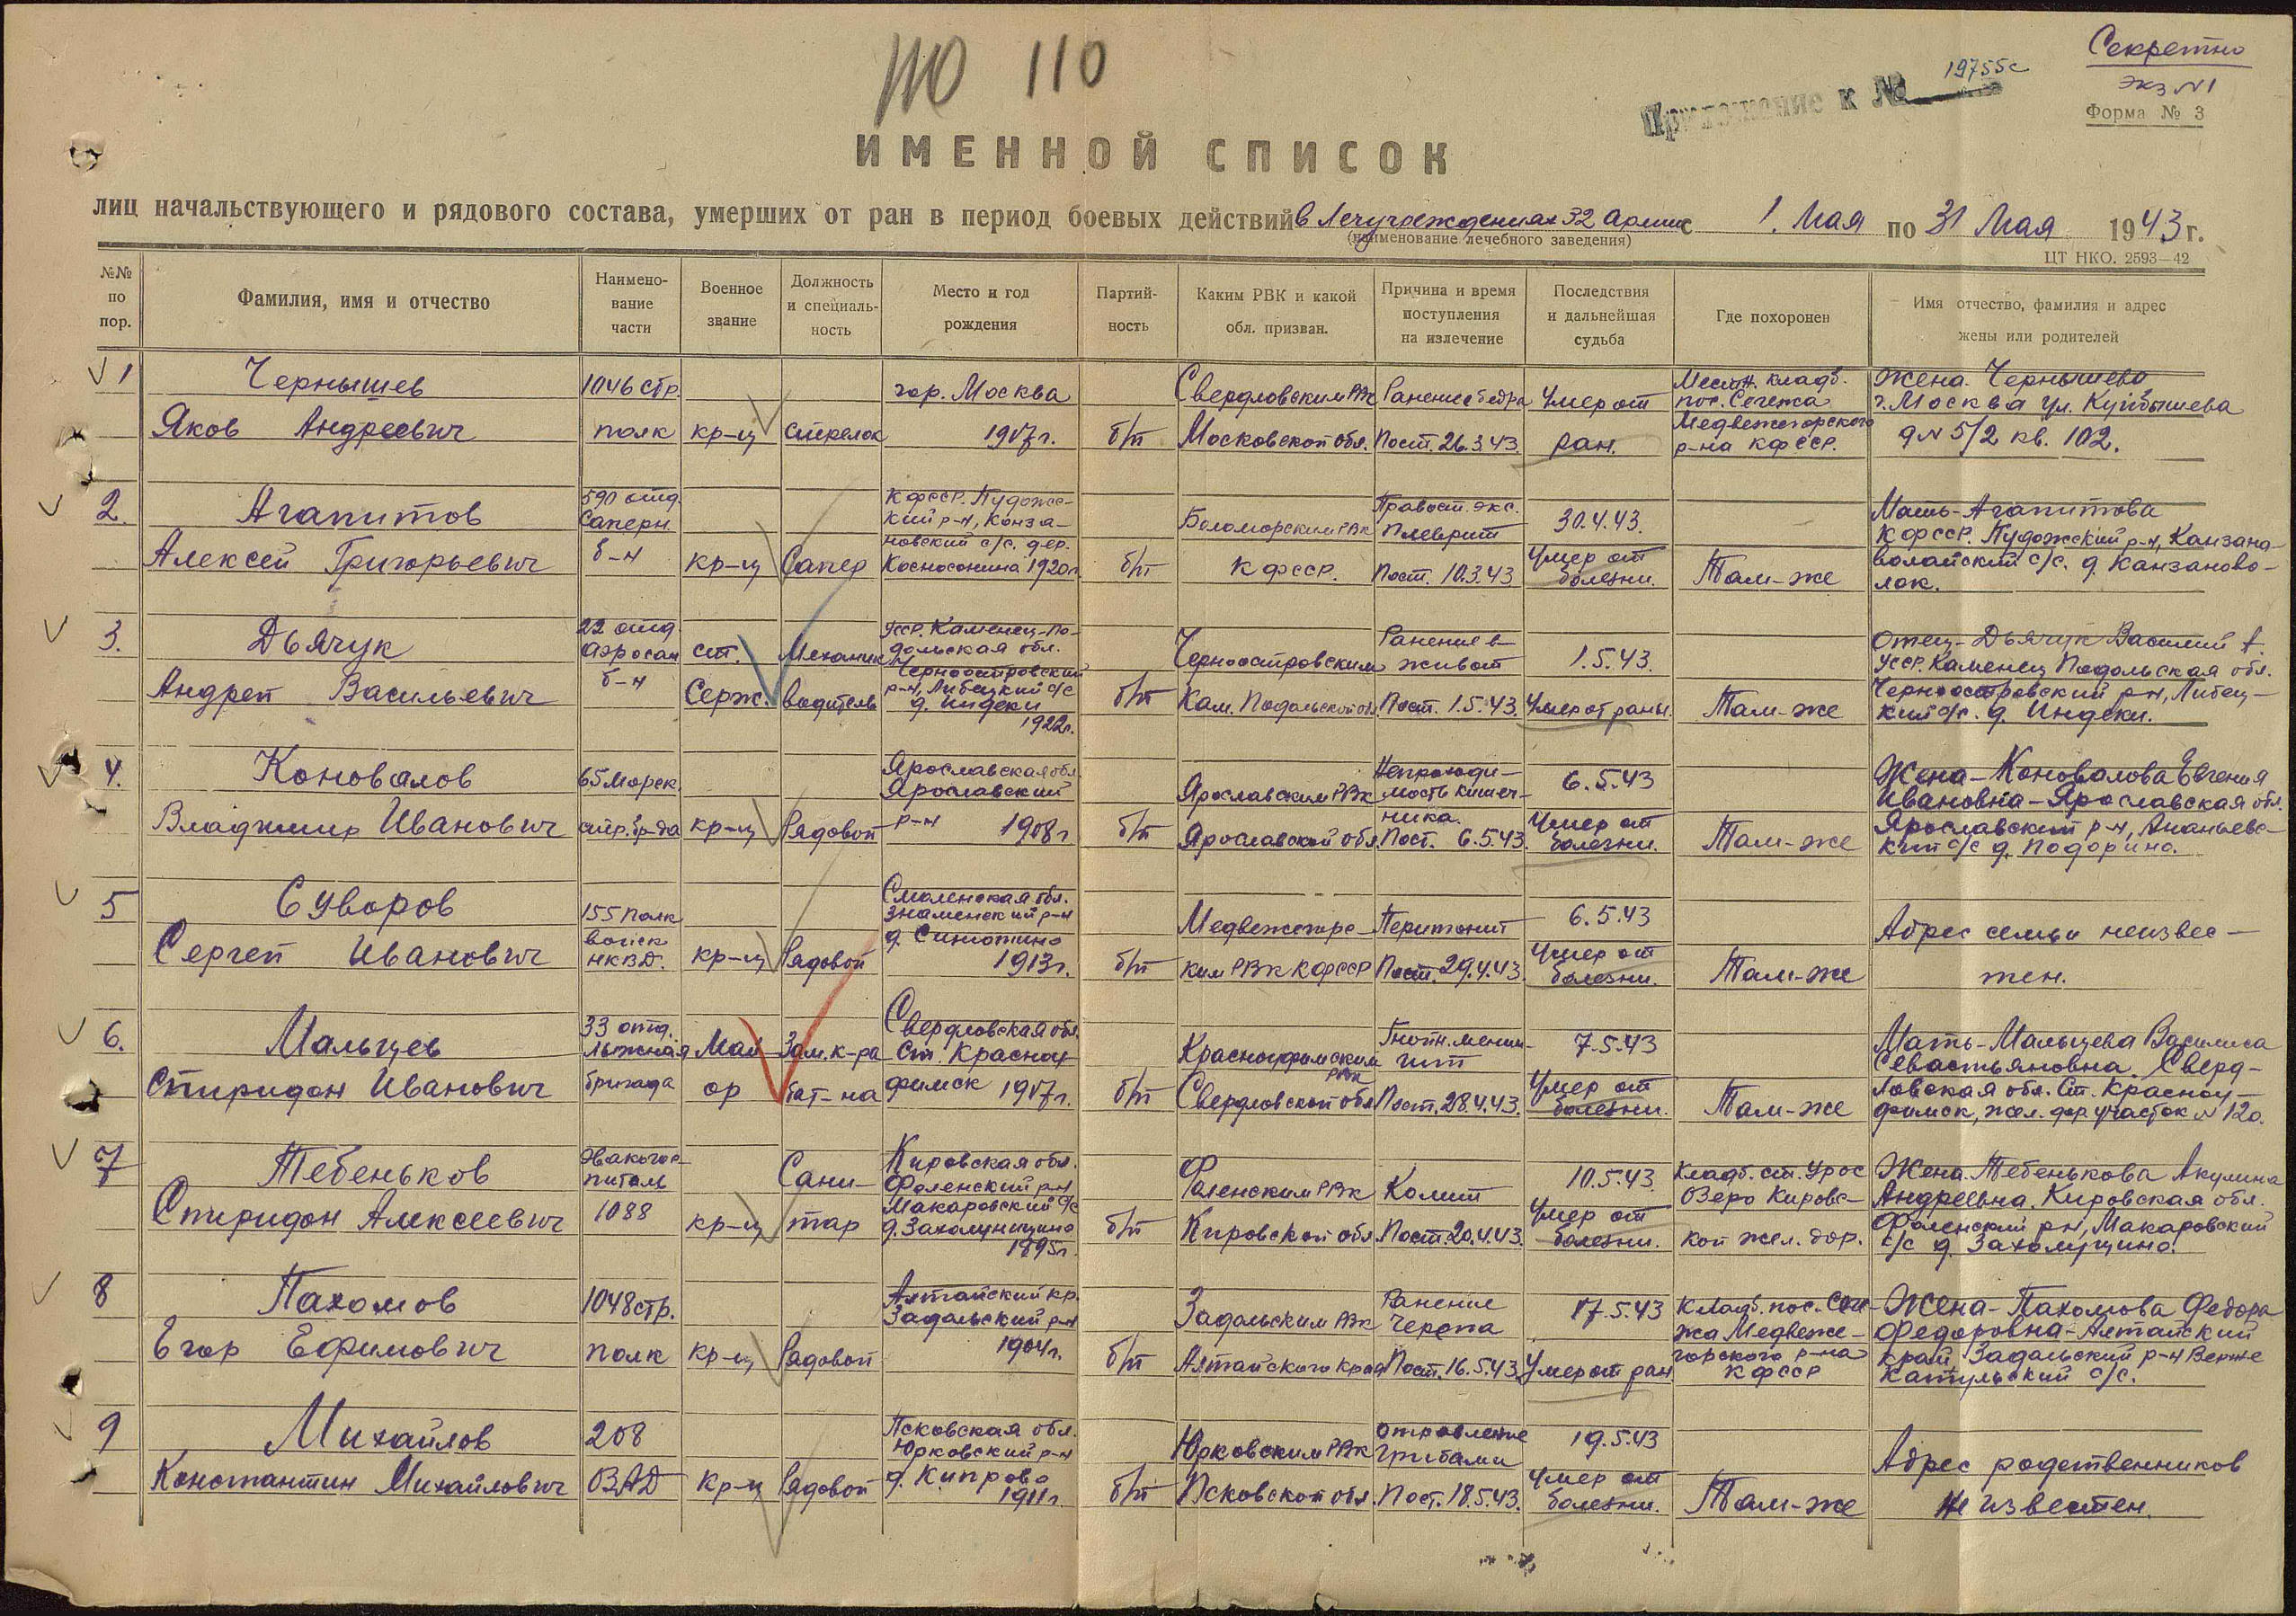 110 110
Секретно
экз №1
Форма № 3
Приложение к № 19755с
ИМЕННОЙ СПИСОК
лиц начальствующего и рядового состава, умерших от ран в период боевых действий в Лечучреждениях 32 Армии с 1. Мая по 31 Мая 1943 г.
(наименование лечебного заведения)
ЦТ НКО. 2593—42
№№ по пор.
Фамилия, имя и отчество
Наимено-
вание
части
Военное
звание
Должность
и специаль-
ность
Место и год
рождения
Партий-
ность
Каким РВК и какой
обл. призван.
Причина и время
поступления
на излечение
Последствия
и дальнейшая
судьба
Где похоронен
Имя отчество, фамилия и адрес
жены или родителей
1
Чернышев
Яков Андреевич
1046 стр.
полк
кр-ц
стрелок
гор. Москва
1907г.
б/п
Свердловским РВк
Московской обл.
Ранение бедра
Пост. 26.3.43.
Умер от
ран.
Местн. кладб.
пос. Сегежа
Медвежегорского
р-на КФССР.
Жена. Чернышева
г. Москва ул. Куйбышева
д N 5/2 кв. 102.
2.
Агапитов
Алексей Григорьевич
590 отд.
Саперн.
б-н
кр-ц
Сапер
КФССР. Пудожс-
кий р-н, Конза-
новский с/с. дер.
1920г.
б/п
Беломорским РВк
КФССР.
Правост. экс.
Плеврит
Пост. 10.3.43
30.4.43.
Умер от
болезни.
Там-же
Мать-Агапитова
КФССР. Пудожский р-н, Канзана-
волокский с/с. д. Канзаново-
лок.
3.
Дьячук
Андрей Васильевич
22 отд.
Аэросан
б-н
ст.
Серж.
Механик
водитель
УССР. Каменец-По-
дольская обл.
Черноостровский
р-н, Либецкий с/с
д. Индеки
1922г.
б/п
Черноостровским
Кам. Подольской обл.
Ранение в
живот
Пост. 1.5.43.
1.5.43.
Умер от раны.
Там-же
Отец-Дьячук Василий
УССР. Каменец Подольская обл.
Черноостровский р-н, Либец-
кий с/с. д. Индеки.
4.
Коновалов
Владимир Иванович
65 Морск.
стр. бр-да
кр-ц
Рядовой
Ярославская обл.
Ярославский
р-н
1908г
б/п
Ярославским РВк
Ярославской обл.
Непроходи-
мость кишеч-
ника.
Пост. 6.5.43.
6.5.43
Умер от
болезни.
Там-же
Жена-Коновалова Евгения
Ивановна-Ярославская обл.
Ярославский р-н, Ананьевс-
кий с/с д. Подорино.
5
Суворов
Сергей Иванович
155 полк
войск
НКВД.
кр-ц
Рядовой
Смоленская обл.
Знаменский р-н
1913г.
б/п
Медвежегорс-
ким РВк КФССР
Перитонит
Пост. 29.4.43.
6.5.43
Умер от
болезни.
Там-же
Адрес семьи неизвес-
тен.
6.
Мальцев
Спиридон Иванович
33 отд.
лыжная
бригада
Май
ор
Зам. к-ра
бат-на
Свердловская обл.
Ст. Красноу-
фимск 1907г.
б/п
Красноуфимским
РВк
Свердловской обл.
Гнойн. менин-
гит
Пост. 28.4.43.
7.5.43
Умер от
болезни.
Там-же
Мать-Мальцева Василиса
Севастьяновна. Сверд-
ловская обл. Ст. Красноу-
фимск, жел. дор. участок N 120.
7
Тебеньков
Спиридон Алексеевич
Эвакогос-
питаль
1088
кр-ц
Сани-
тар
Кировская обл.
Фаленский р-н
Макаровский с/с
1895г.
б/п
Фаленским РВк
Кировской обл.
Колит
Пост. 20.4.43.
10.5.43.
Умер от
болезни.
Кладб. ст. Урос
Озеро Кировс-
кой жел. дор.
Жена. Тебенькова Акулина
Андреевна. Кировская обл.
Фаленский р-н, Макаровский
с/с д.
8
Пахомов
Егор Ефимович
1048 стр.
полк
кр-ц
Рядовой
Алтайский кр.
Задальский р-н
1904г.
б/п
Задальским РВк
Алтайского края
Ранение
Черепа
Пост. 16.5.43.
17.5.43
Умер от ран.
Кладб. пос. Сеге-
жа Медвеже-
горского р-на
КФССР
Жена-Пахомова Федора
Федоровна-Алтайский
край, Задальский р-н Верже
Катульский с/с.
9
Михайлов
Константин Михайлович
208
ОЗАД
кр-ц
Рядовой
Псковская обл.
Юрковский р-н
д. Кипрово
1911г
б/п
Юрковским РВк
Псковской обл.
Отравление
грибами
Пост. 18.5.43.
19.5.43
Умер от
болезни.
Там-же
Адрес родственников
не известен.